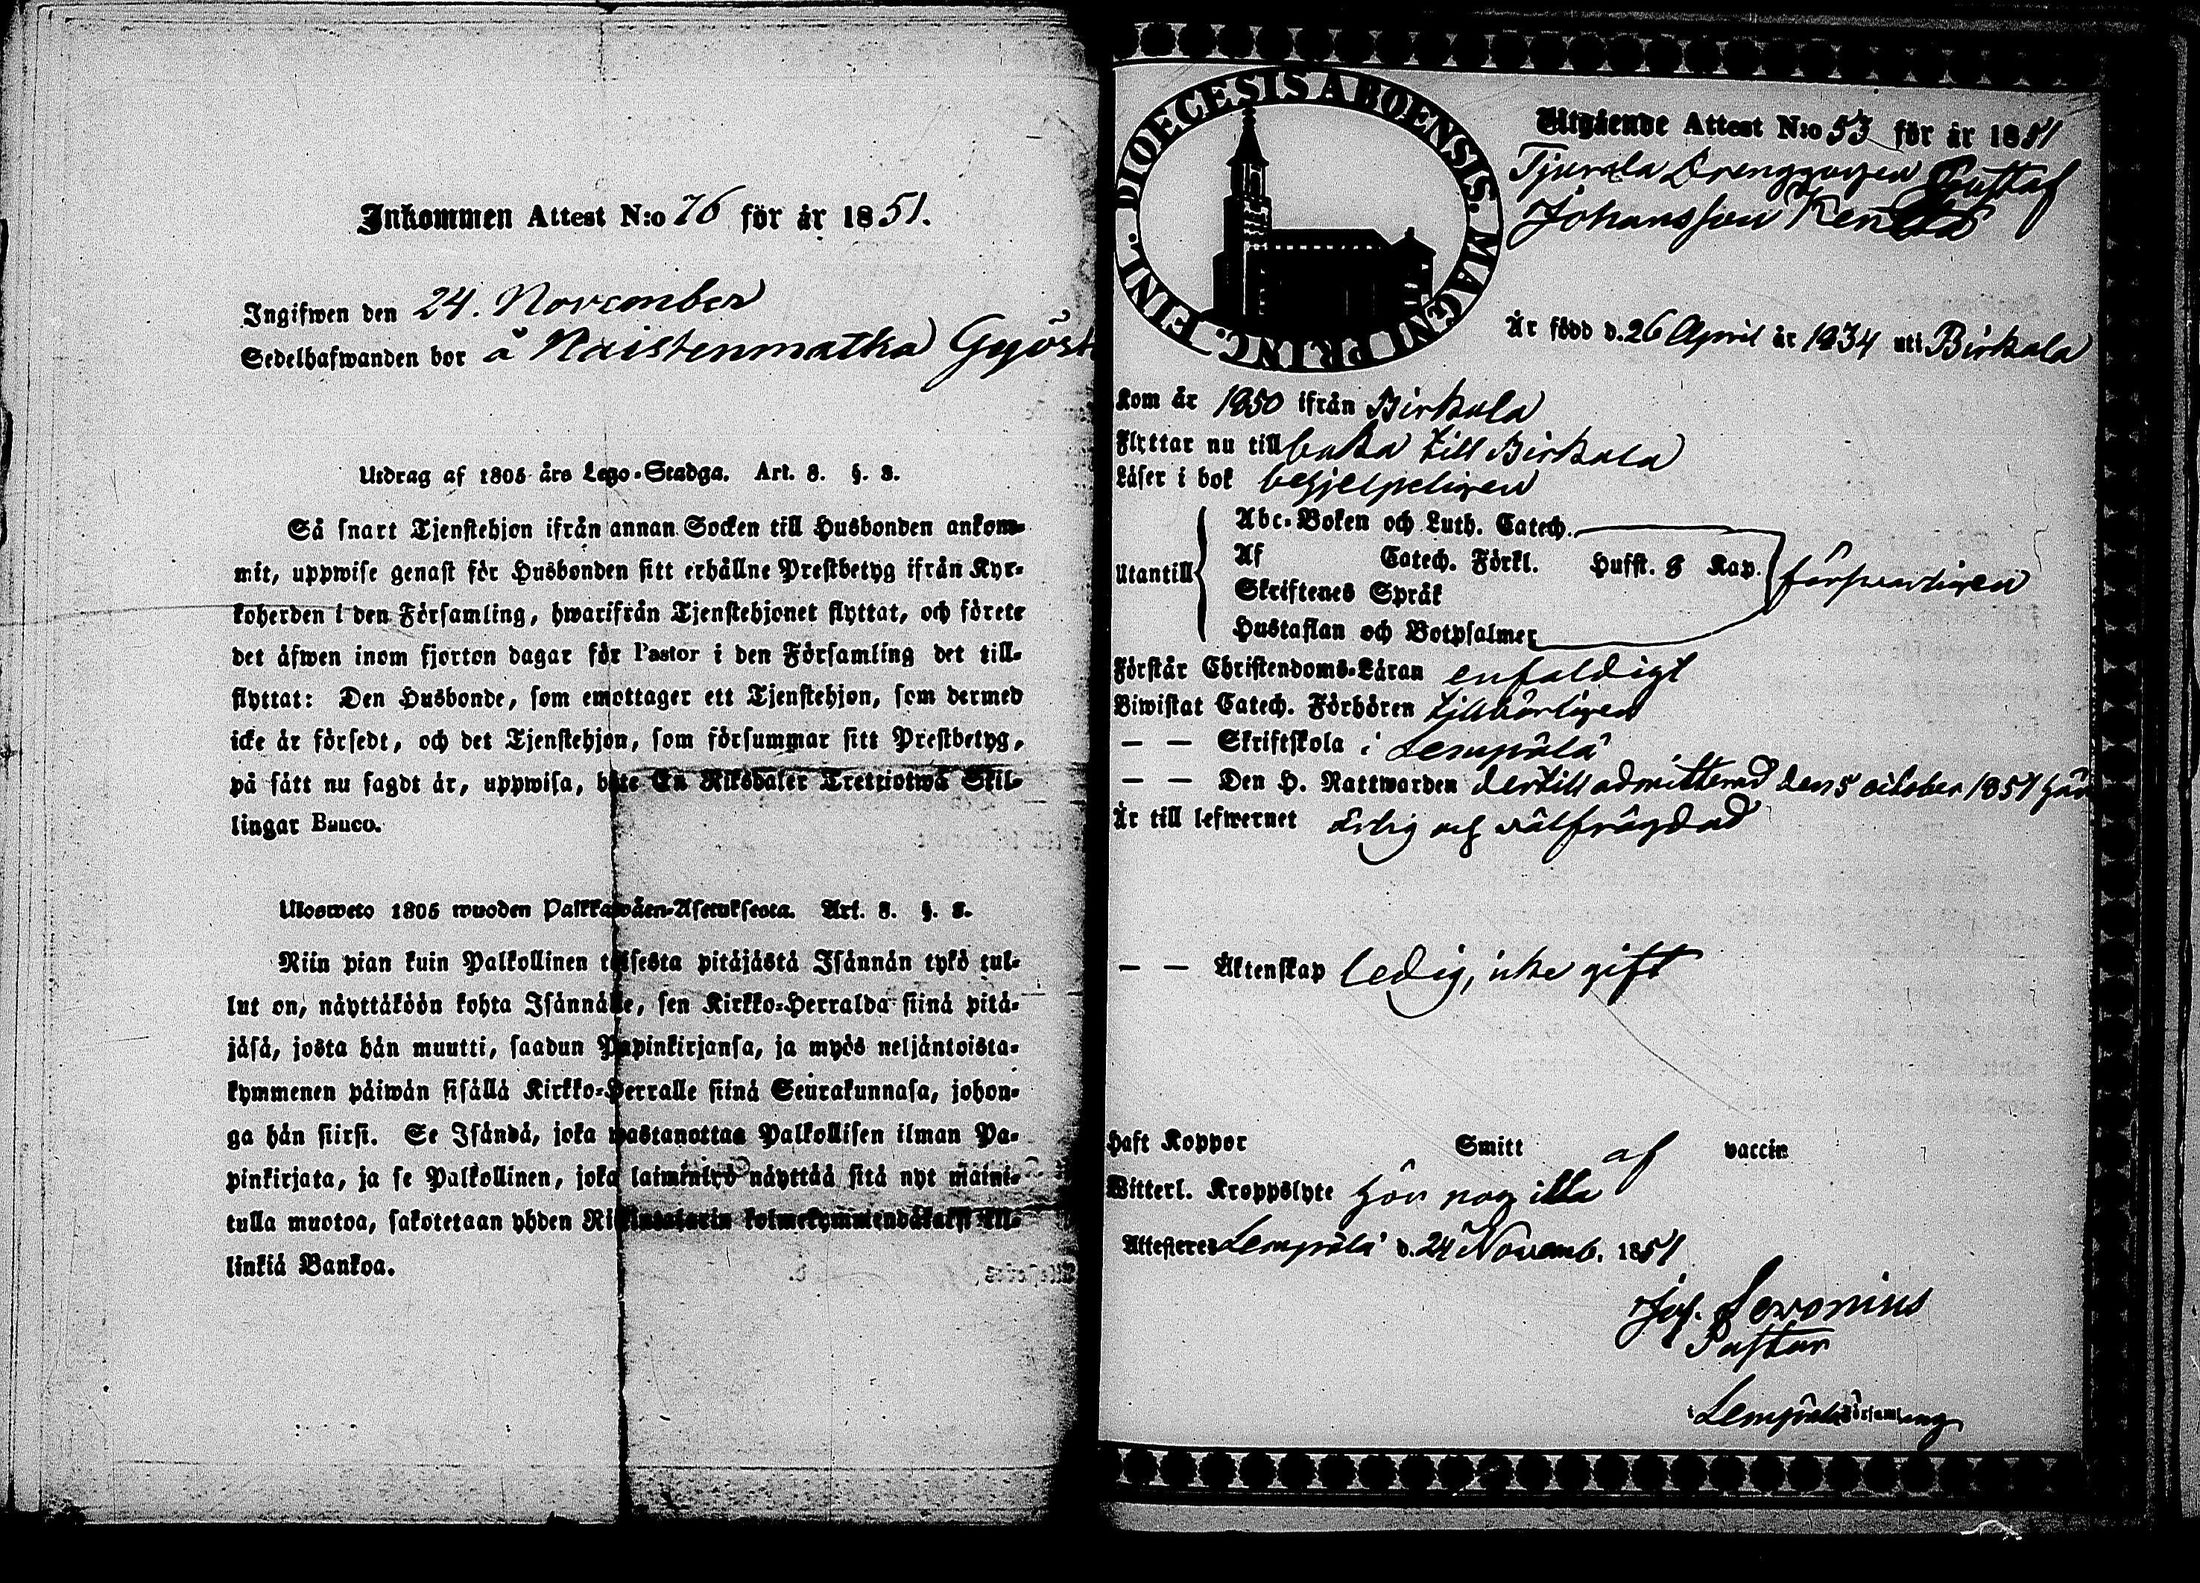 Inkommen Attest N:o 76 för år 1851.
Ingifwen den 24. November
Sedelhafwanden bor å Naistenmatka
Utdrag af 1805 års Lego-Stadga. Art. 8. §. 3.
Så snart Tjenstehjon ifrån annan Socken till Husbonden ankom-
mit, uppwise genast för Husbonden sitt erhållne Prestbetyg ifrån Kyr-
koherden i den Församling, hwarifrån Tjenstehjonet flyttat, och förete
det äfwen inom fjorton dagar för Pastor i den Församling det till-
flyttat: Den Husbonde, som emottager ett Tjenstehjon, som dermed
icke är försedt, och det Tjenstehjon, som försummar sitt Prestbetyg,
på sätt nu sagdt är, uppwisa, böte En Riksdaler Trettiotwå Skil-
lingar Banco.
Ulosweto 1805 wuoden Palkkawäen-Asetuksesta. Art. 8. §. 3.
Niin pian kuin Palkollinen toisesta pitäjästä Isännän tykö tul-
lut on, näyttäköön kohta Isännälle, sen Kirkko-Herralda siinä pitä-
jäsä, josta hän muutti, saadun Papinkirjansa, ja myös neljäntoista-
kymmenen päiwän sisällä Kirkko-Herralle siinä Seurakunnasa, johon-
ga hän siirsi. Se Isändä, joka wastanottaa Palkollisen ilman Pa-
pinkirjata, ja se Palkollinen, joka laiminlyö näyttää sitä nyt maini-
tulla muotoa, sakotetaan yhden Riikintalarin kolmekymmendäkaksi kil-
linkiä Bankoa.
DIOECESIS ABOENSIS. MAGNI PRINC. FINL.
Utgående Attest N:o 53 för år 1851
Drenggossen Gustaf
Johansson
Är född d. 26 April år 1834 uti Birkala
Kom år 1850 ifrån Birkala
Flyttar nu till baka till Birkala
Läser i bok behjelpeligen
Utantill
Abc-Boken och Luth. Catech.
Af Catech. Förkl. Hufst. 8 Kap. försvarligen
Skriftenes Språk
Hustaflan och Botpsalmer
Förstår Christendoms-Läran enfaldigt
Biwistat Catech. Förhören tillbörligen
— — Skriftskola i Lempälä
— — Den H. Nattwarden dertill admitterad den 5 october 1851 här
Är till lefwernet ärlig och välfrägdad
— — Äktenskap ledig, icke gift
Haft Koppor Smitt af vaccin
Witterl. Kroppslyte hör nog illa
Attesteres Lempälä d. 24 Novemb. 1851
Pastor
i Lempälä Församling